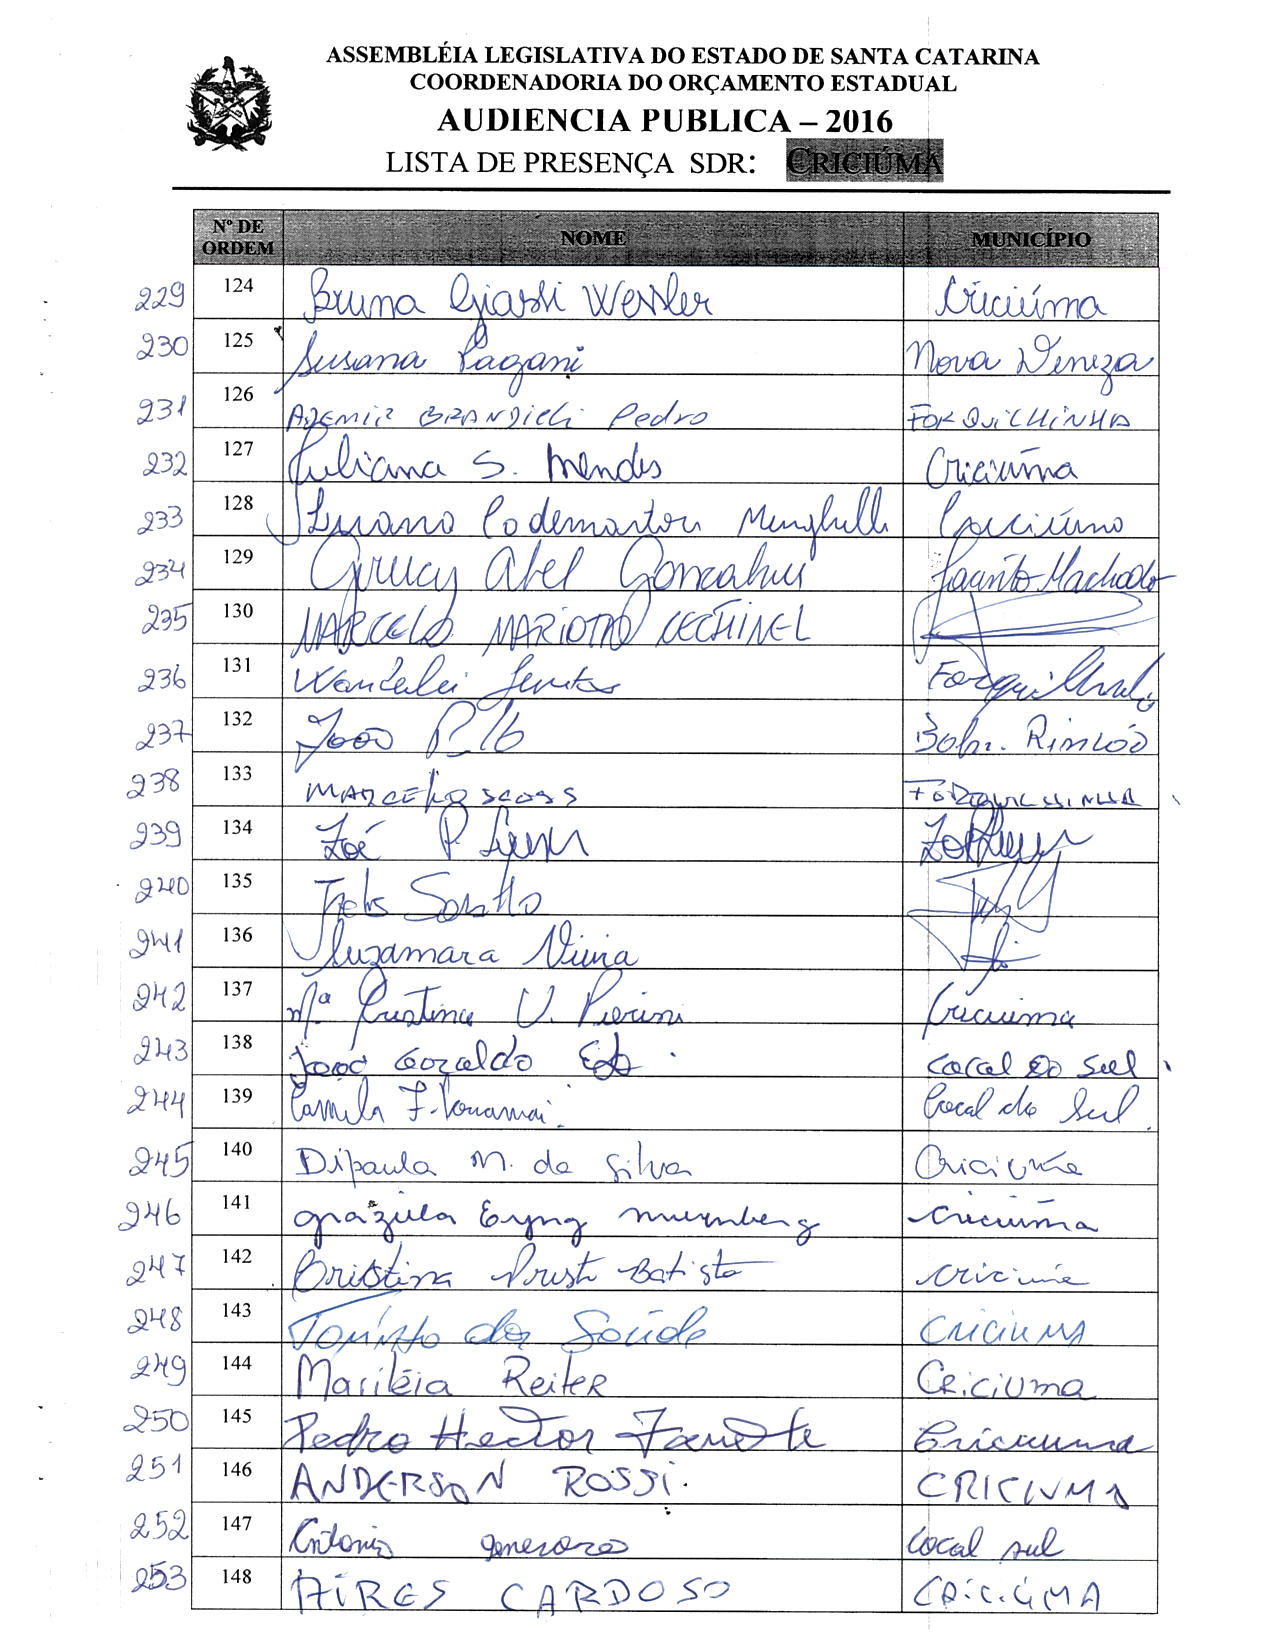 ASSEMBLÉIA LEGISLATIVA DO ESTADO DE SANTA CATARINA
COORDENADORIA DO ORÇAMENTO ESTADUAL
AUDIENCIA PUBLICA – 2016
LISTA DE PRESENÇA SDR: CRICIÚMA
Nº DE ORDEM NOME MUNICÍPIO
229 124 Bruna Giassi Wessler Criciúma
230 125 Susana Pagani Nova Veneza
231 126 ADEMIR Pedro FORQUILHINHA
232 127 Juliana S. Mendes Criciúma
233 128 Luciano Codemartori Criciúma
234 129 Abel Goncalves Jacinto Machado
235 130 MARCELO MARIOTTO CECHINEL
236 131 Wanderlei Forquilhinha
237 132 João Baln. Rincão
238 133 MARCELO FORQUILHINHA
239 134 Zoé P.
240 135
241 136 Luzamara Vieira
242 137 Mª Cristina V. Pierini Criciuma
243 138 João Geraldo Cocal do Sul
244 139 Camila F. Cocal do Sul.
245 140 Dipaula M. da Silva Criciúma
246 141 Graziela Eyng Nuernberg Criciúma
247 142 Cristina Batista Criciúma
248 143 Toninho da Saúde CRICIUMA
249 144 Mariléia Reiter Criciuma
250 145 Pedro Hector Criciuma
251 146 ANDERSON ROSSI. CRICIUMA
252 147 Antonio generoso Cocal sul
253 148 AIRES CARDOSO CRICIÚMA